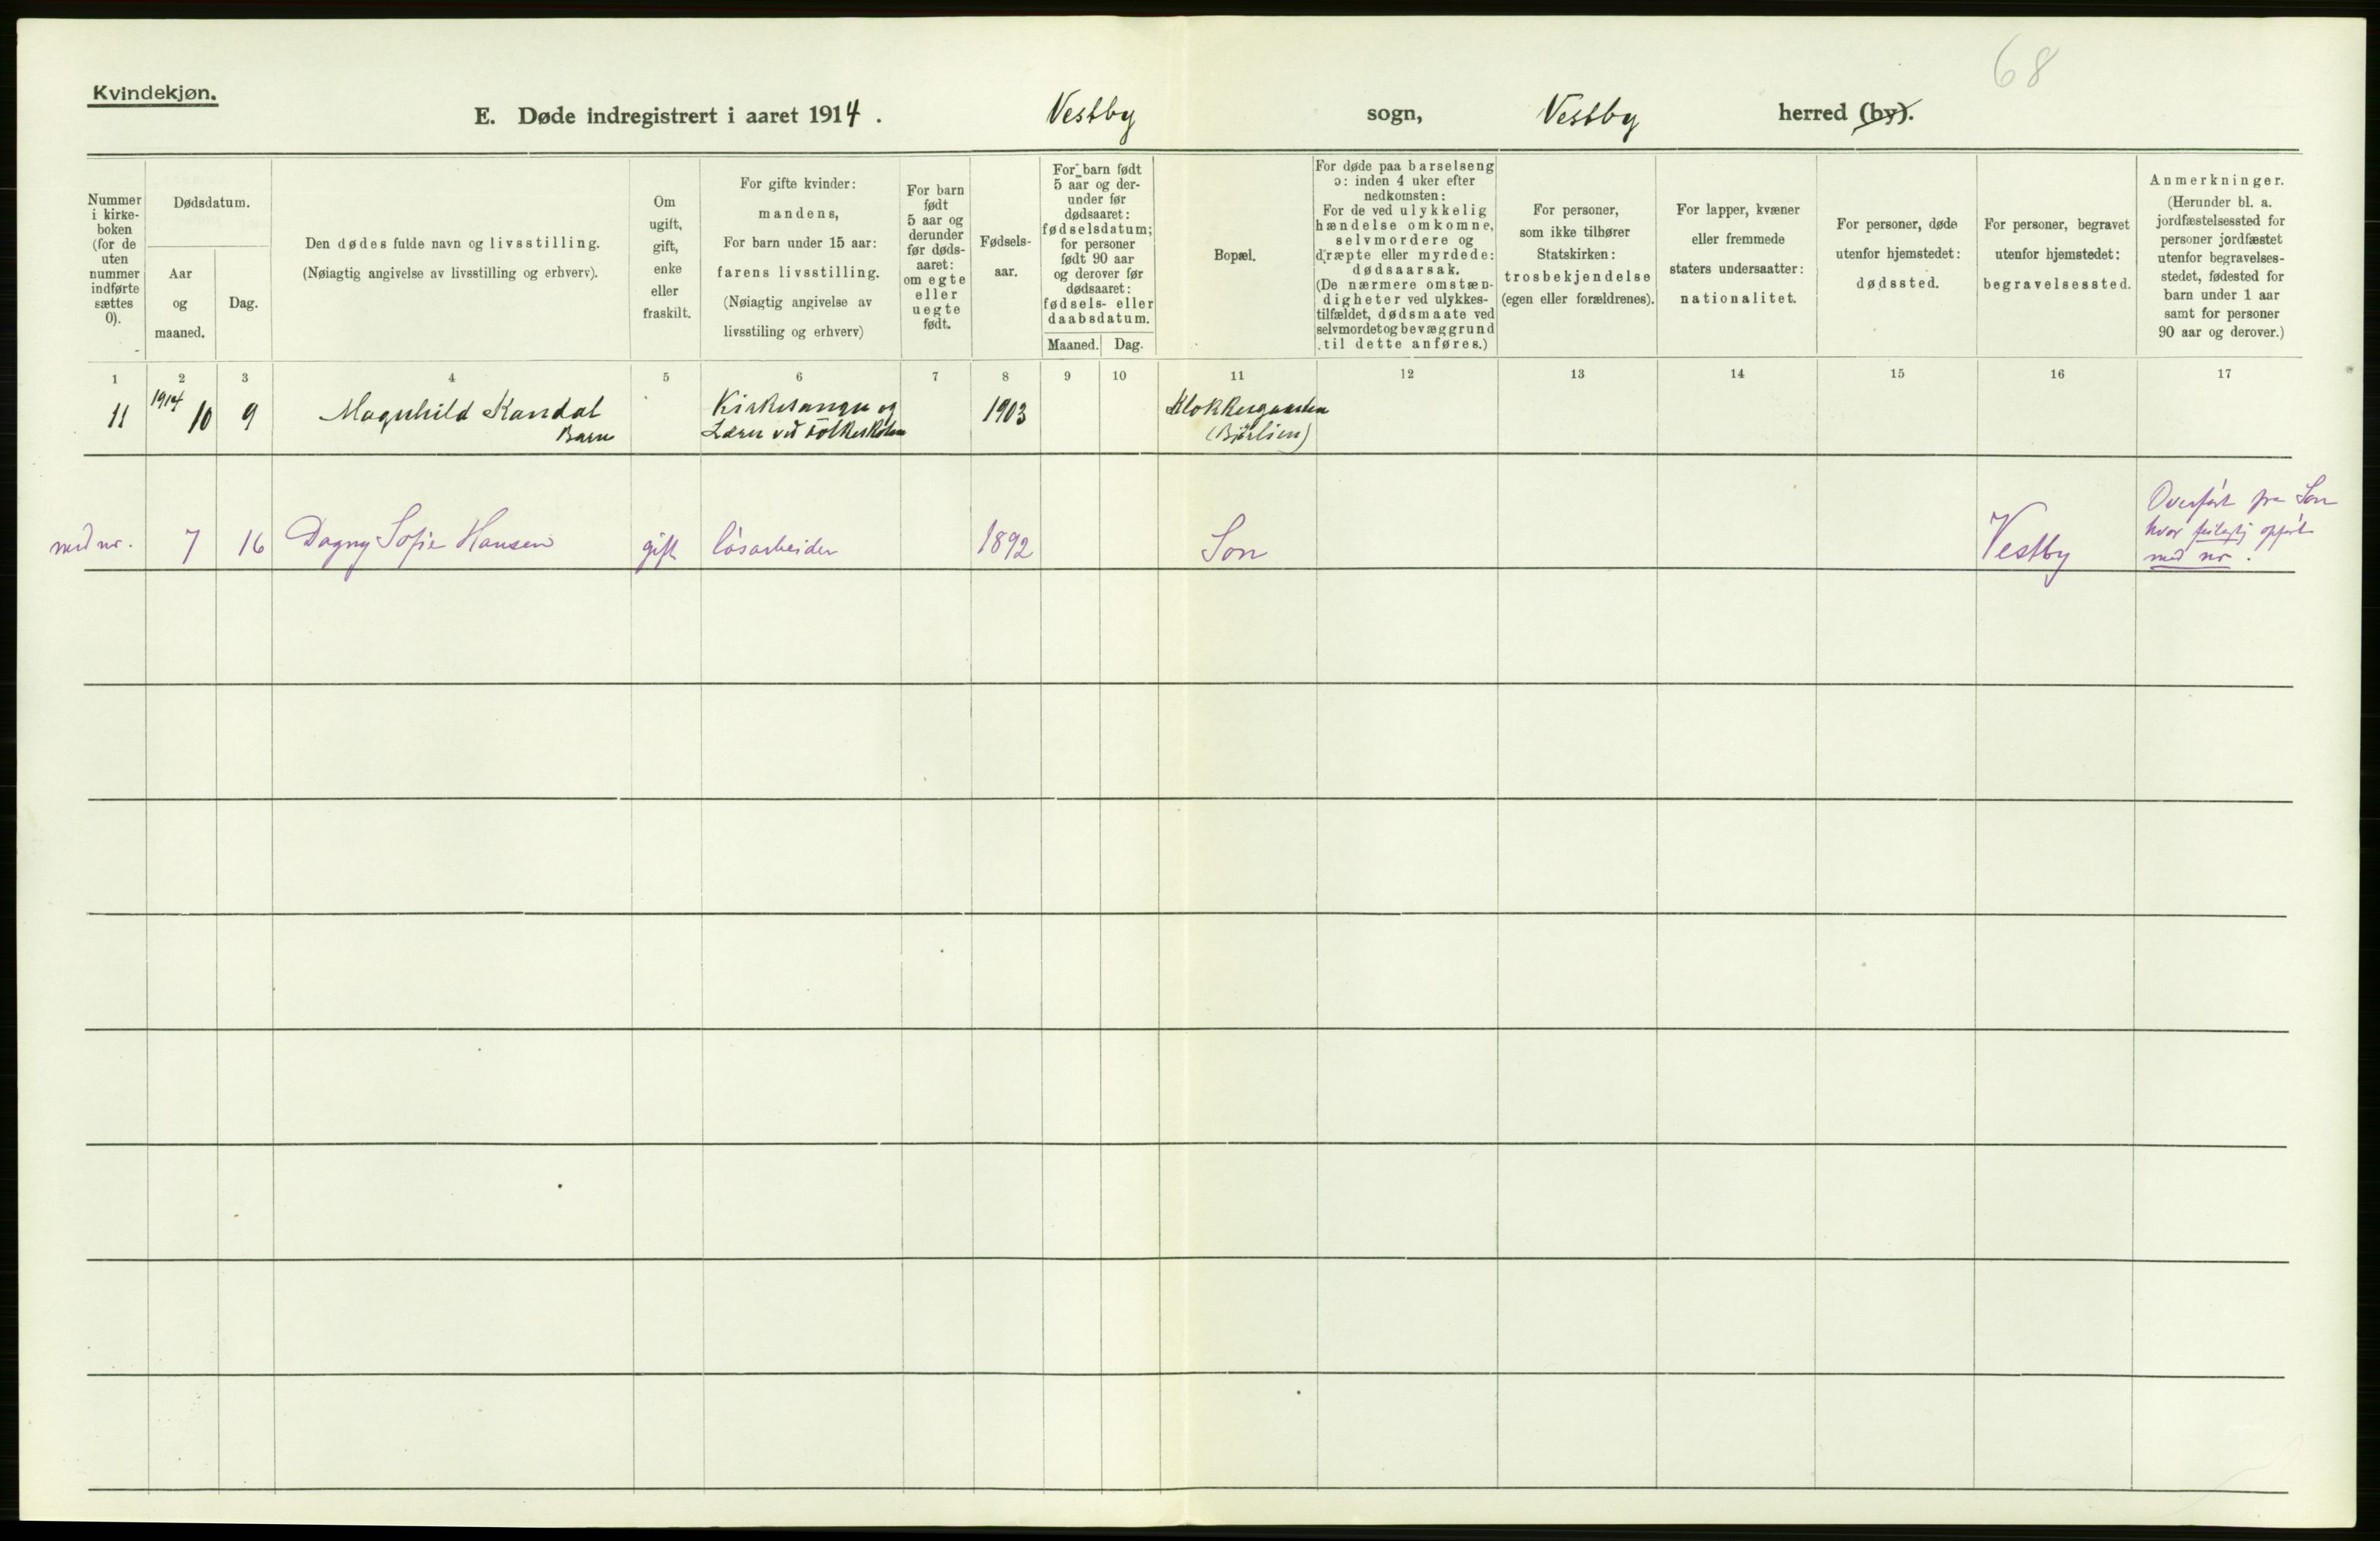 68
Kvindekjøn.
E. Døde indregistrert i aaret 1914. Vestby sogn, Vestby herred (by).
Nummer
i kirke-
boken
(for de
uten
nummer
indførte
sættes
0).
Dødsdatum.
Aar
og
maaned.
Dag.
Den dødes fulde navn og livsstilling.
(Nøiagtig angivelse av livsstilling og erhverv).
Om
ugift,
gift,
enke
eller
fraskilt.
For gifte kvinder:
mandens,
For barn under 15 aar:
farens livsstilling.
(Nøiagtig angivelse av
livsstiling og erhverv)
For barn
født
5 aar og
derunder
før døds-
aaret:
om egte
eller
uegte
født.
Fødsels-
aar.
For barn født
5 aar og der-
under før
dødsaaret:
fødselsdatum;
for personer
født 90 aar
og derover før
dødsaaret:
fødsels- eller
daabsdatum.
Maaned. Dag.
Bopæl.
For døde paa barselseng
ɔ: inden 4 uker efter
nedkomsten:
For de ved ulykkelig
hændelse omkomne,
selvmordere og
dræpte eller myrdede:
dødsaarsak.
(De nærmere omstæn-
digheter ved ulykkes-
tilfældet, dødsmaate ved
selvmordet og bevæggrund
til dette anføres.)
For personer,
som ikke tilhører
Statskirken:
trosbekjendelse
(egen eller forældrenes).
For lapper, kvæner
eller fremmede
staters undersaatter:
nationalitet.
For personer, døde
utenfor hjemstedet:
dødssted.
For personer, begravet
utenfor hjemstedet:
begravelsessted.
Anmerkninger.
(Herunder bl. a.
jordfæstelsessted for
personer jordfæstet
utenfor begravelses-
stedet, fødested for
barn under 1 aar
samt for personer
90 aar og derover.)
1 2 3 4 5 6 7 8 9 10 11 12 13 14 15 16 17
11 1914 10 9 Magnhild Kandal
Barn
Kirkesanger og
Lærer ved Folkeskolen
1903
Klokkergaarden
(Bjørlien)
med nr. 7 16 Dagny Sofie Hansen gift løsarbeider 1892 Son Vestby
Overført fra Son
hvor feilagtig opført
med nr.